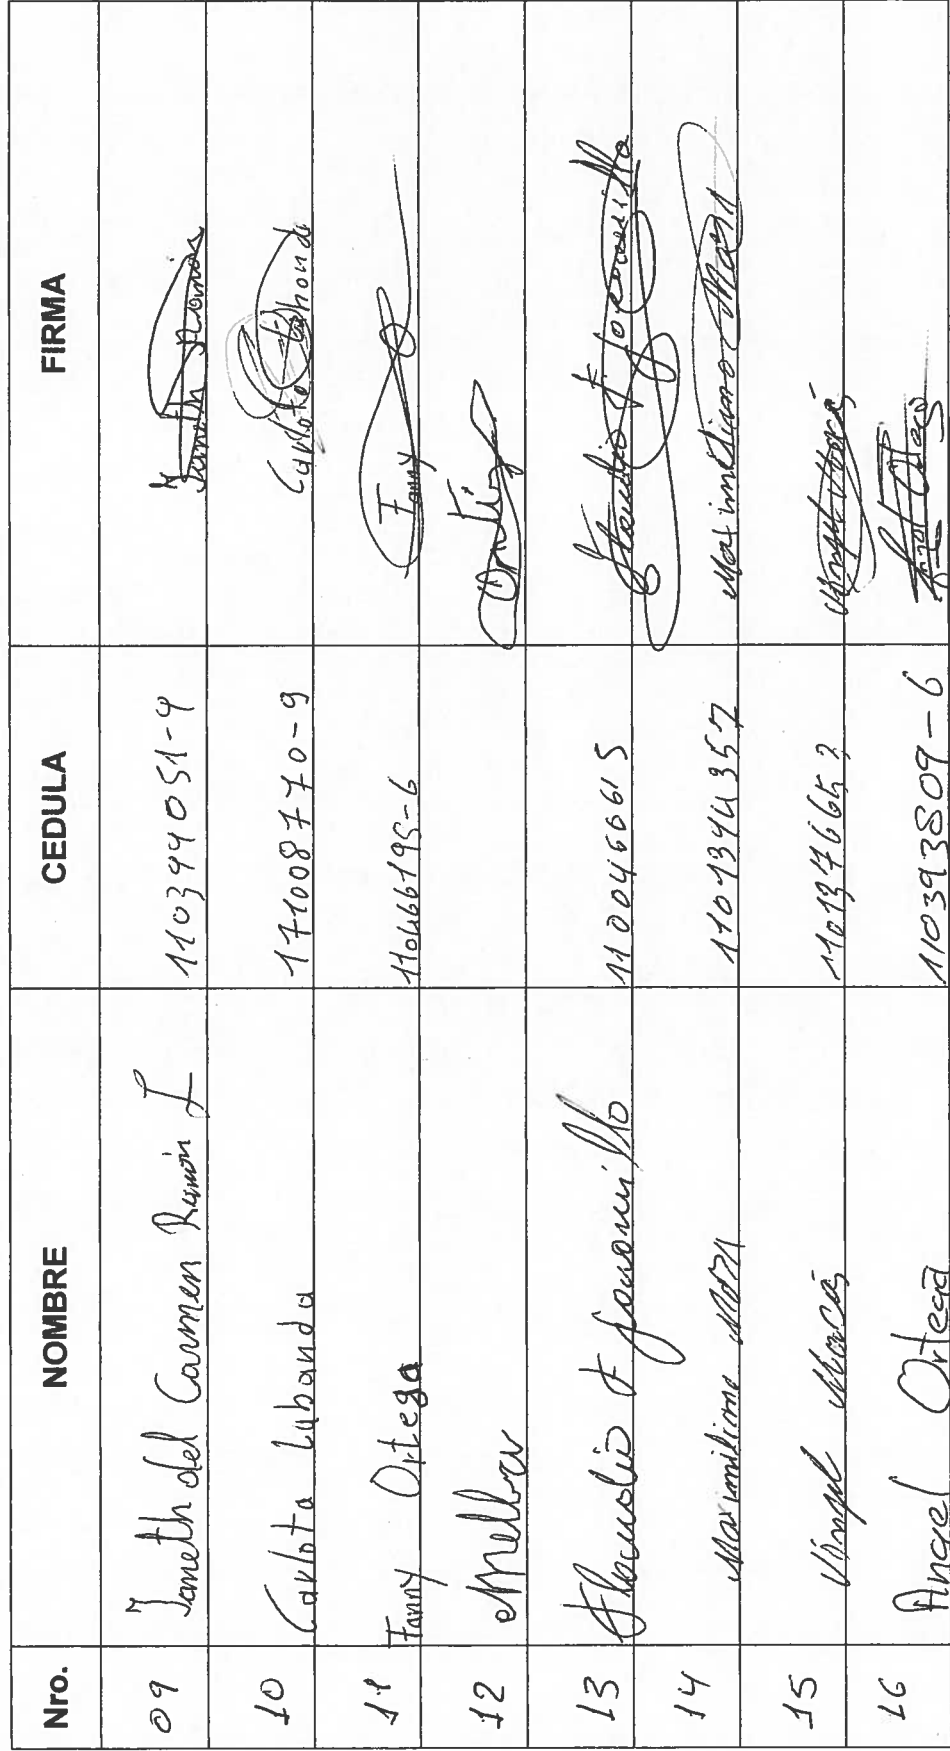 Nro. NOMBRE CEDULA FIRMA
09 Janeth del Carmen Ramón L 110394051-4 Janeth Ramón
10 Carlota Labanda 171008770-9 Carlota Labanda
11 Fanny Ortega 110466195-6 Fanny
12 Melba
13 Claudio F Jaramillo 1100466615 Claudio F. Jaramillo
14 Maximiliano Mora 1101344357 Maximiliano Mora
15 Angel 
16 Angel Ortega 110393809-6 Angel Ortega